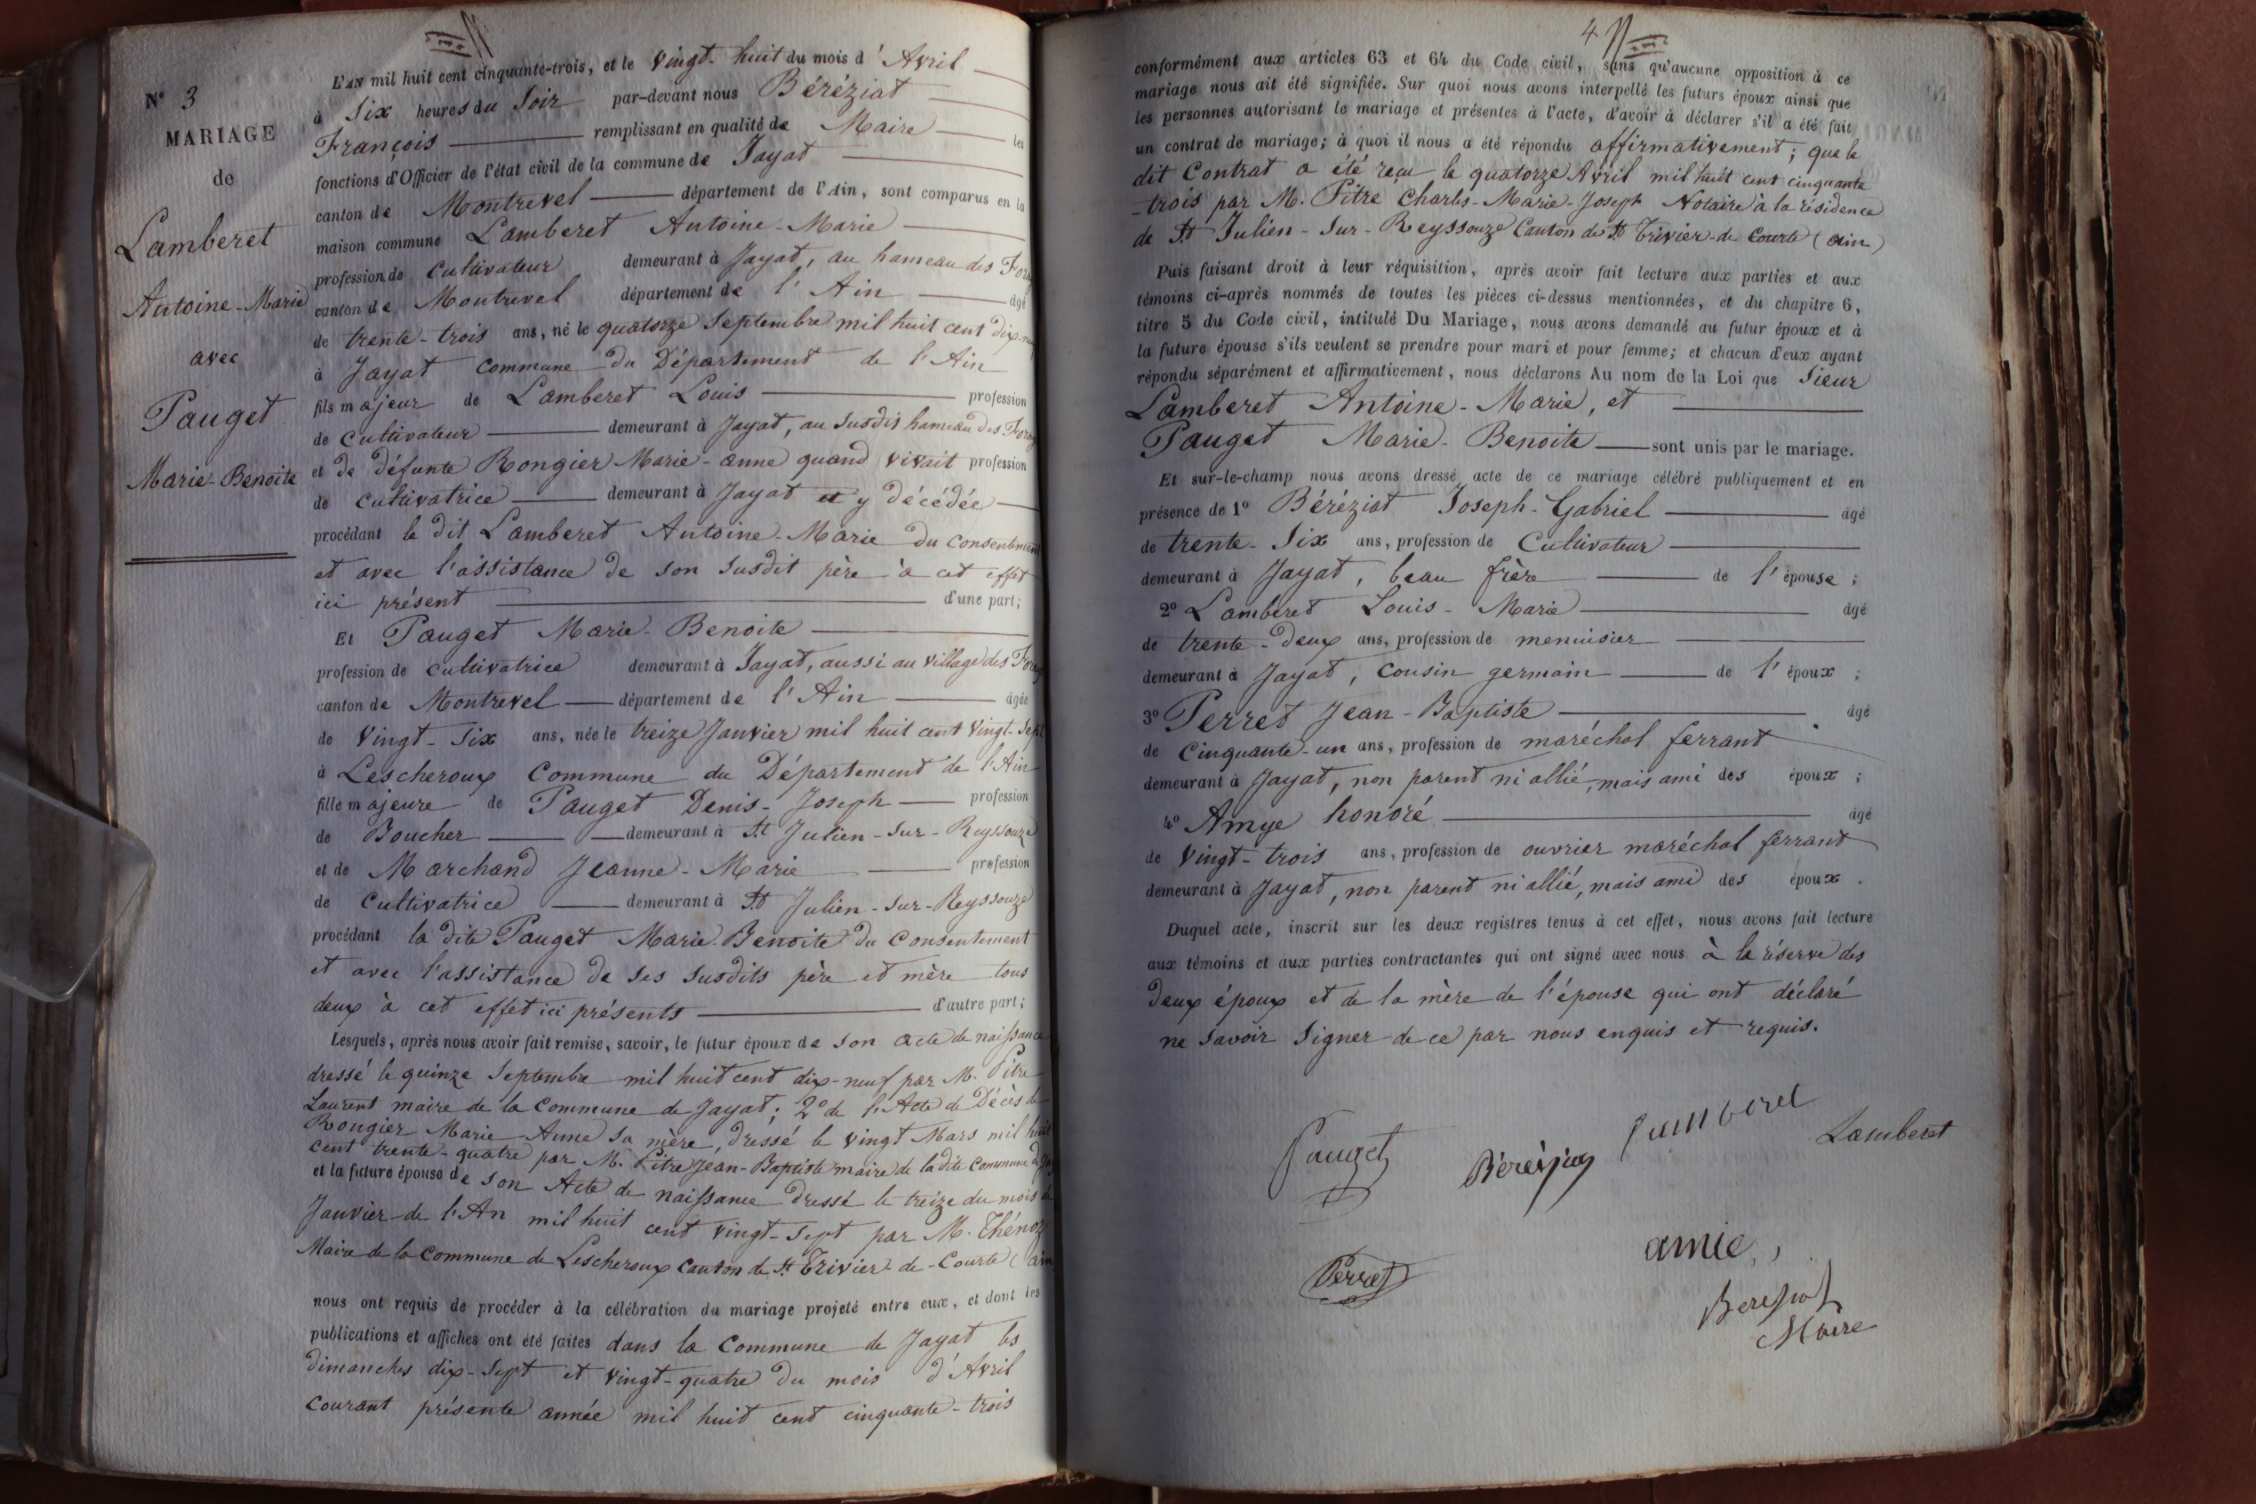 N° 3
MARIAGE
de
Lamberet
Antoine-Marie
avec
Pauget
Marie-Benoite
L'AN mil huit cent cinquante-trois, et le vingt-huit du mois d'Avril
à Six heures du Soir par-devant nous Béréziat
François remplissant en qualité de Maire les
fonctions d'Officier de l'état civil de la commune de Jayat
canton de Montrevel département de l'Ain, sont comparus en la
maison commune Lamberet Antoine-Marie
profession de cultivateur demeurant à Jayat, au hameau des
canton de Montrevel département de l'Ain âgé
de trente-trois ans, né le quatorze Septembre mil huit cent dix-neuf
à Jayat commune du Département de l'Ain
fils majeur de Lamberet Louis profession
de cultivateur demeurant à Jayat, au susdit hameau des
et de défunte Rongier Marie-anne quand vivait profession
de cultivatrice demeurant à Jayat et y décédée
procédant le dit Lamberet Antoine-Marie du consentement
et avec l'assistance de son susdit père à cet effet
ici présent d'une part;
Et Pauget Marie-Benoite
profession de cultivatrice demeurant à Jayat, aussi au village des
canton de Montrevel département de l'Ain âgée
de Vingt-Six ans, née le treize Janvier mil huit cent vingt-Sept
à Lescheroux commune du Département de l'Ain
fille majeure de Pauget Denis-Joseph profession
de Boucher demeurant à St Julien-sur-Reyssouze
et de Marchand Jeanne-Marie profession
de cultivatrice demeurant à St Julien-sur-Reyssouze
procédant la dite Pauget Marie Benoite du consentement
et avec l'assistance de ses susdits père et mère tous
deux à cet effet ici présents d'autre part;
Lesquels, après nous avoir fait remise, savoir, le futur époux de son acte de naissance
dressé le quinze Septembre mil huit cent dix-neuf par M. Pitre
Laurent maire de la commune de Jayat; 2° de l'Acte de Décès de
Rongier Marie Anne sa mère, dressé le vingt Mars mil huit
cent trente-quatre par M. Pitre Jean-Baptiste maire de la dite commune de
et la future épouse de son Acte de naissance dressé le treize du mois de
Janvier de l'An mil huit cent vingt-sept par M. Thénoz
Maire de la commune de Lescheroux canton de St Trivier-de-Courte (ain
nous ont requis de procéder à la célébration du mariage projeté entre eux, et dont les
publications et affiches ont été faites dans la commune de Jayat les
dimanches dix-sept et vingt-quatre du mois d'Avril
courant présente année mil huit cent cinquante-trois
4
conformément aux articles 63 et 64 du Code civil, sans qu'aucune opposition à ce
mariage nous ait été signifiée. Sur quoi nous avons interpellé les futurs époux ainsi que
les personnes autorisant le mariage et présentes à l'acte, d'avoir à déclarer s'il a été fait
un contrat de mariage; à quoi il nous a été répondu affirmativement; que le
dit Contrat a été reçu le quatorze Avril mil huit cent cinquante
-trois par M. Pitre Charles-Marie-Joseph Notaire à la résidence
de St Julien-Sur-Reyssouze Canton de St Trivier-de Courte (ain)
Puis faisant droit à leur réquisition, après avoir fait lecture aux parties et aux
témoins ci-après nommés de toutes les pièces ci-dessus mentionnées, et du chapitre 6,
titre 5 du Code civil, intitulé Du Mariage, nous avons demandé au futur époux et à
la future épouse s'ils veulent se prendre pour mari et pour femme; et chacun d'eux ayant
répondu séparément et affirmativement, nous déclarons Au nom de la Loi que Sieur
Lamberet Antoine-Marie, et
Pauget Marie-Benoite sont unis par le mariage.
Et sur-le-champ nous avons dressé acte de ce mariage célébré publiquement et en
présence de 1° Béréziat Joseph-Gabriel âgé
de trente-Six ans, profession de Cultivateur
demeurant à Jayat, beau frère de l'épouse;
2° Lamberet Louis-Marie âgé
de trente-deux ans, profession de menuisier
demeurant à Jayat, cousin germain de l'époux;
3° Perret Jean-Baptiste âgé
de Cinquante-un ans, profession de maréchal ferrant
demeurant à Jayat, non parent ni allié, mais ami des époux;
4° Amye honoré âgé
de Vingt-trois ans, profession de ouvrier maréchal ferrant
demeurant à Jayat, non parent ni allié, mais ami des époux.
Duquel acte, inscrit sur les deux registres tenus à cet effet, nous avons fait lecture
aux témoins et aux parties contractantes qui ont signé avec nous à la réserve des
deux époux et de la mère de l'épouse qui ont déclaré
ne savoir signer de ce par nous enquis et requis.
Pauget Béréziat Lamberet Lamberet
Perret amie
Bereziat
Maire